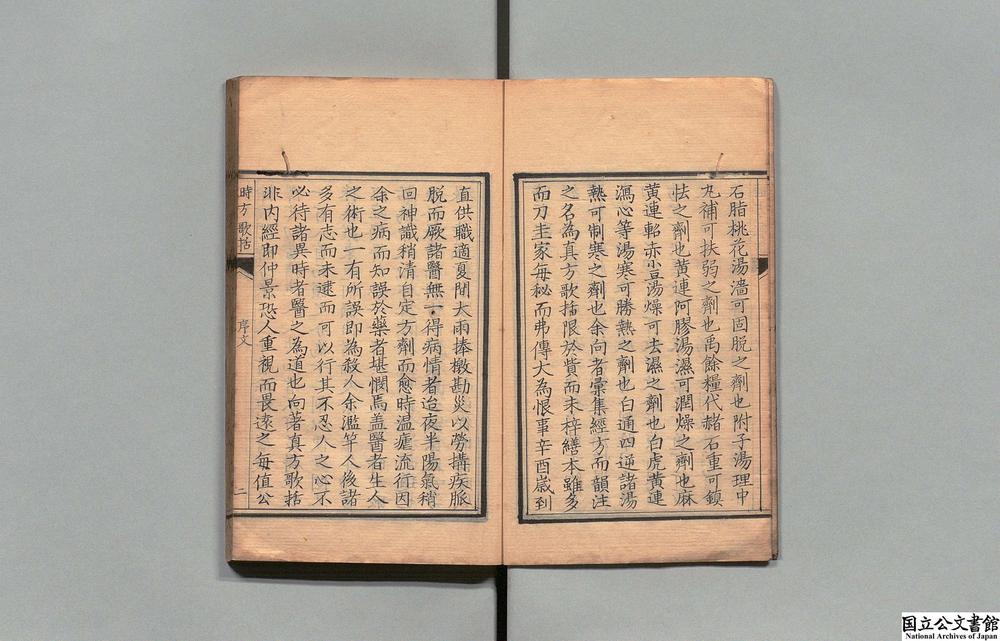 石脂桃花湯濇可固脱之劑也附子湯理中
丸補可扶弱之劑也禹餘糧代赭石重可鎮
怯之劑也黄連阿膠湯濕可潤燥之劑也麻
黄連軺赤小荳湯燥可去濕之劑也白虎黄連
瀉心等湯寒可勝熱之劑也白通四逆諸湯
熱可制寒之劑也余向者彙集經方而韻注
之名為真方歌括限於貲而未梓繕本雖多
而刀圭家每秘而弗傳大為恨事辛酉歲到
直供職適夏閏大雨捧檄勘災以勞搆疾脈
脱而厥諸醫無一得病情者迨夜半陽氣稍
回神識稍清自定方劑而愈時温瘧流行因
余之病而知誤於藥者堪憫焉盖醫者生人
之術也一有所誤即為殺人余濫竽人後諸
多有志而未逮而可以行其不忍人之心不
必待諸異時者醫之為道也向著真方歌括
非内經即仲景恐人重視而畏遠之每值公
時方歌括
序文
二
国立公文書館
National Archives of Japan